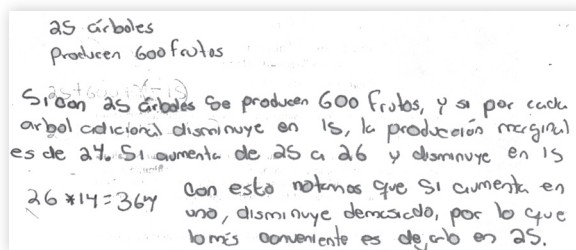 25 árboles
Producen 600 frutos
Si con 25 árboles se producen 600 frutos, y si por cada
arbol adicional disminuye en 15, la producción marginal
es de 24. Si aumenta de 25 a 26 y disminuye en 15
26 * 14 = 364 Con esto notamos que si aumenta en
uno, disminuye demasiado, por lo que
lo más conveniente es dejarlo en 25.